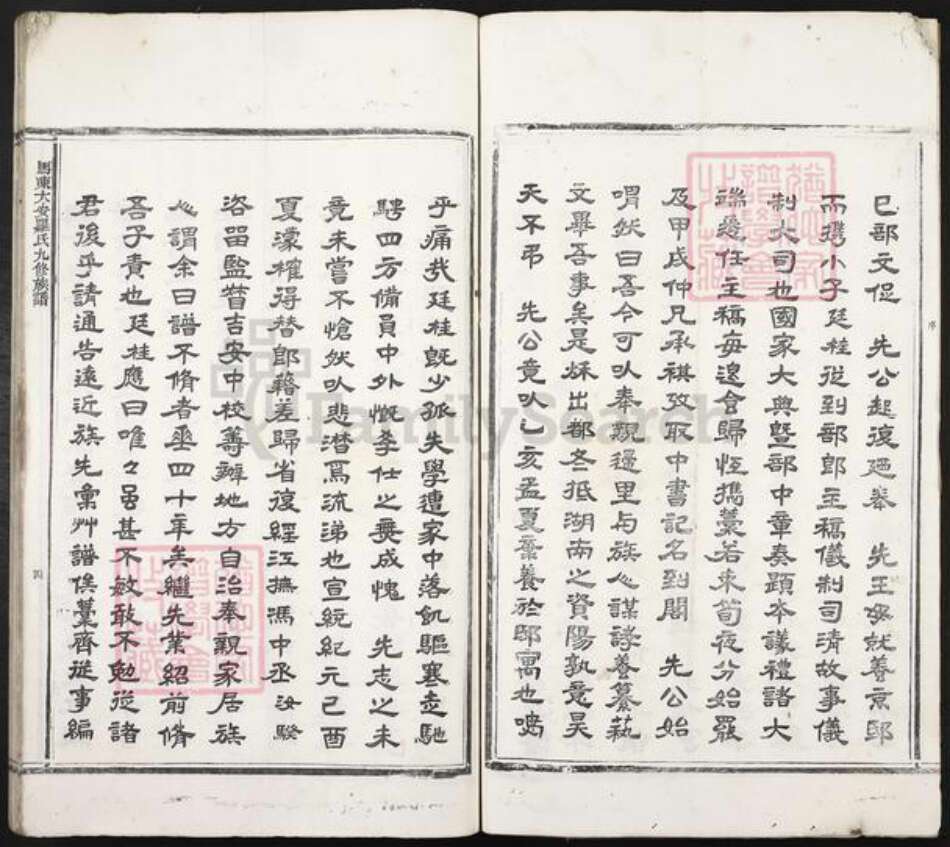 已部文促 先公起復廼奉 先王母就養京邸
而攜小子廷桂從到部郎主稿儀制司清故事儀
制大司也國家大典暨部中章奏題本議禮諸大
端悉任主稿每退食歸恆攜藁若束筍夜分始罷
及甲戌仲兄承祺攷取中書記名到閣 先公始
喟然曰吾今可以奉親還里与族人謀諄養纂執
文畢吾事矣是秌出都冬抵湖南之資陽孰意昊
天不弔 先公竟以乙亥孟夏棄養於邸寓也嗚
乎痛哉廷桂旣少孤失學遭家中落飢驅塞走馳
騁四方備員中外慨學仕之無成愧 先志之未
竟未嘗不愴然以悲潸焉流涕也宣統紀元己酉
夏濛榷得替郎籍差歸省復經江撫馮中丞汝騤
咨留監督吉安中校籌辦地方自治奉親家居族
人謂余曰譜不脩者垂四十年矣繼先業紹前脩
吾子責也廷桂應曰唯々虽甚不敏敢不勉從諸
君後乎請通告遠近族先彙艸譜俟藁齊從事編
馬東大安羅氏九修族譜
序
四
FamilySearch